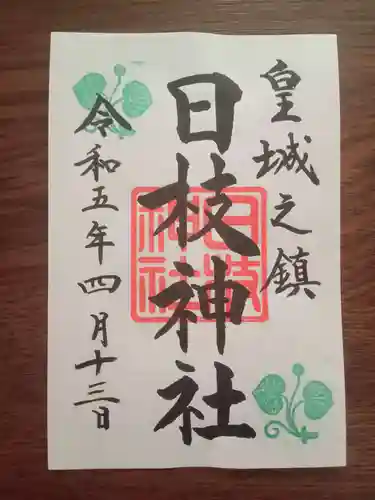 皇城之鎮
日枝神社
日枝神社
令和五年四月十三日